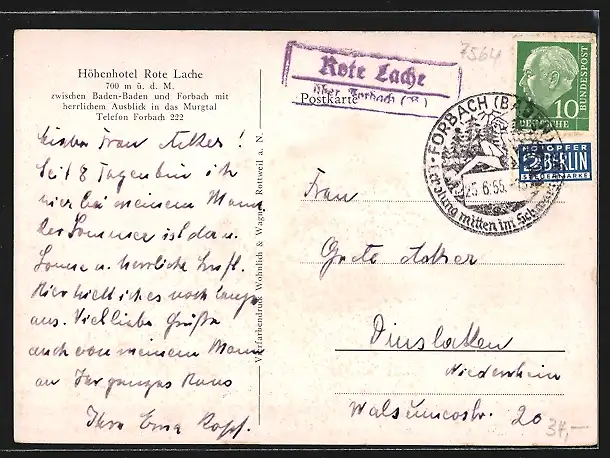 Höhenhotel Rote Lache
700 m ü. d. M.
zwischen Baden-Baden und Forbach mit
herrlichem Ausblick in das Murgtal
Telefon Forbach 222
Rote Lache
über Forbach (B)
Postkarte
7564
10
DEUTSCHE BUNDESPOST
NOTOPFER
2 BERLIN
STEUERMARKE
FORBACH (BADEN)
mitten im
Liebe Frau Acker!
Seit 8 Tagen bin ich
hier bei meinem Mann.
Der Sommer ist da u.
Sonne u. herrliche Luft.
Hier hielt ich es noch lange
aus. Viel liebe Grüße
auch von meinem Mann
an Ihr ganzes Haus
Ihre Erna
Vierfarbendruck Wohnlich & Wagner, Rottweil a. N.
Frau
Grete Acker
Dinslaken
Niederrhein
20
34,-